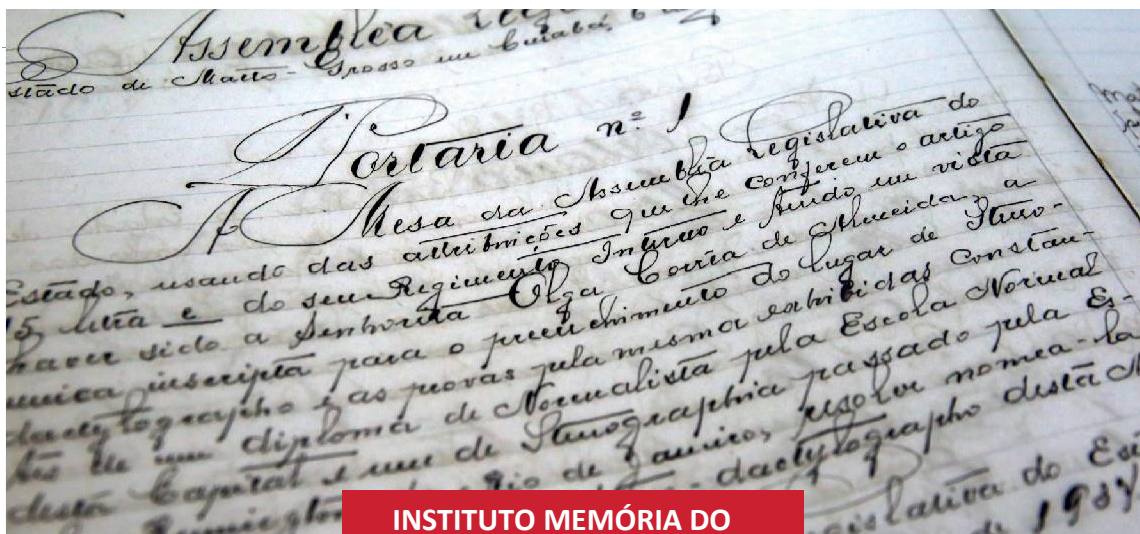 Assembléa Legis
stado de Matto-Grosso em Cuiabá,
Portaria nº 1
A Mesa da Assembléa Legislativa do
Estado, usando das attribuições que lhe conferem o artigo
15, letra e do seu Regimento Interno e tendo em vista
haver sido a Senhorita Olga Corrêa de Almeida, a
unica inscripta para o preenchimento do lugar de Steno-
dactylographo e as provas pela mesma exhibidas constan-
tes de um diploma de Normalista pela Escola Normal
desta Capital e um de Stenographia passado pela Es-
Remington Rio de Janeiro, resolve nomea-la
dactylographo desta
gislativa do Es
de 193
INSTITUTO MEMÓRIA DO